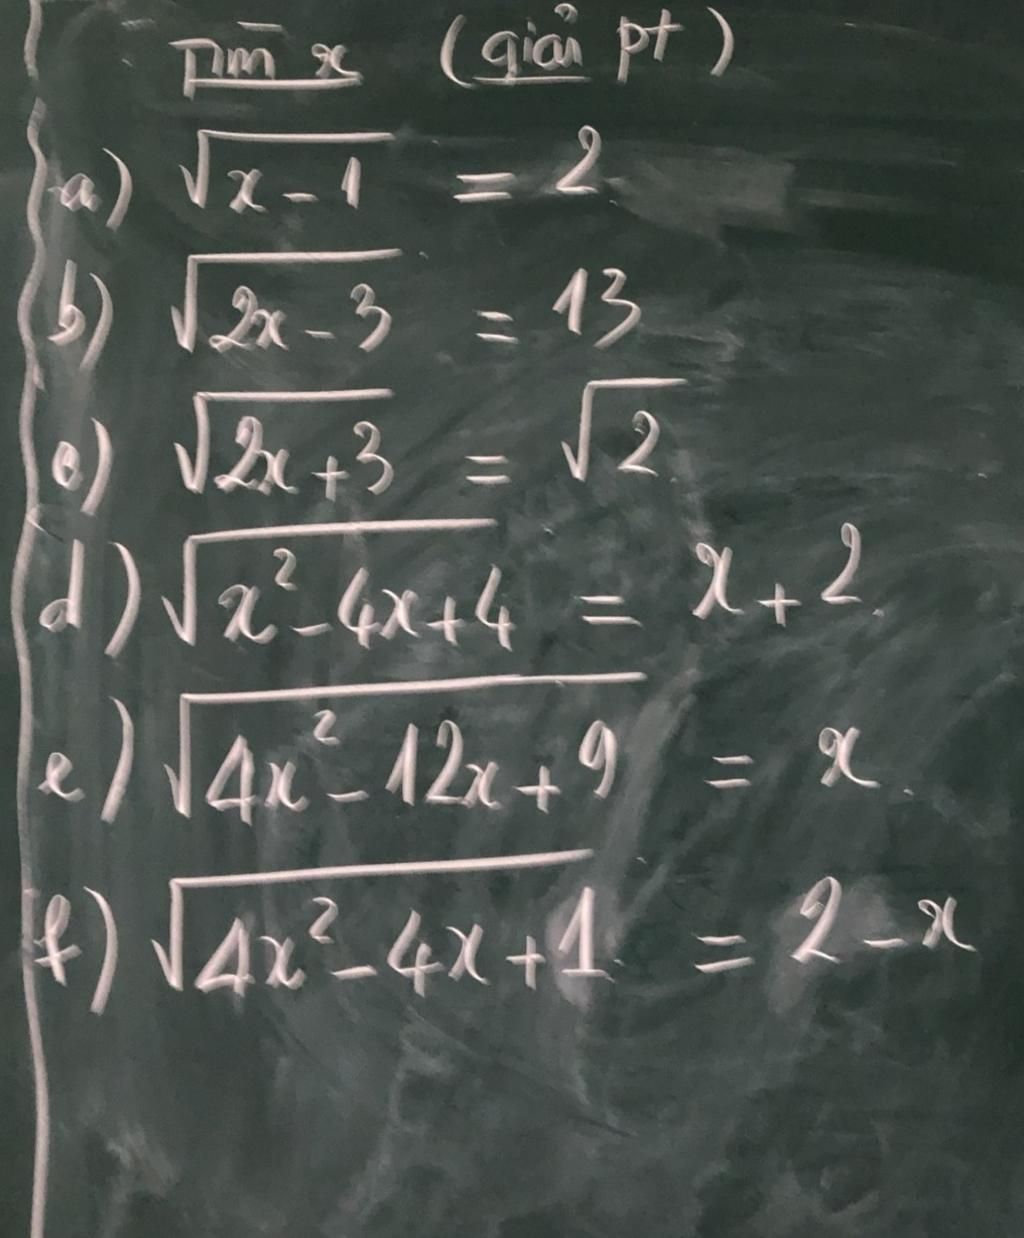 Tìm x (giải pt)
a) √(x - 1) = 2
b) √(2x - 3) = 13
c) √(2x + 3) = √2
d) √(x² - 4x + 4) = x + 2
e) √(4x² - 12x + 9) = x
f) √(4x² - 4x + 1) = 2 - x